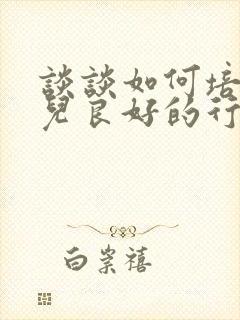 談談如何培
兒良好的行
白崇禧